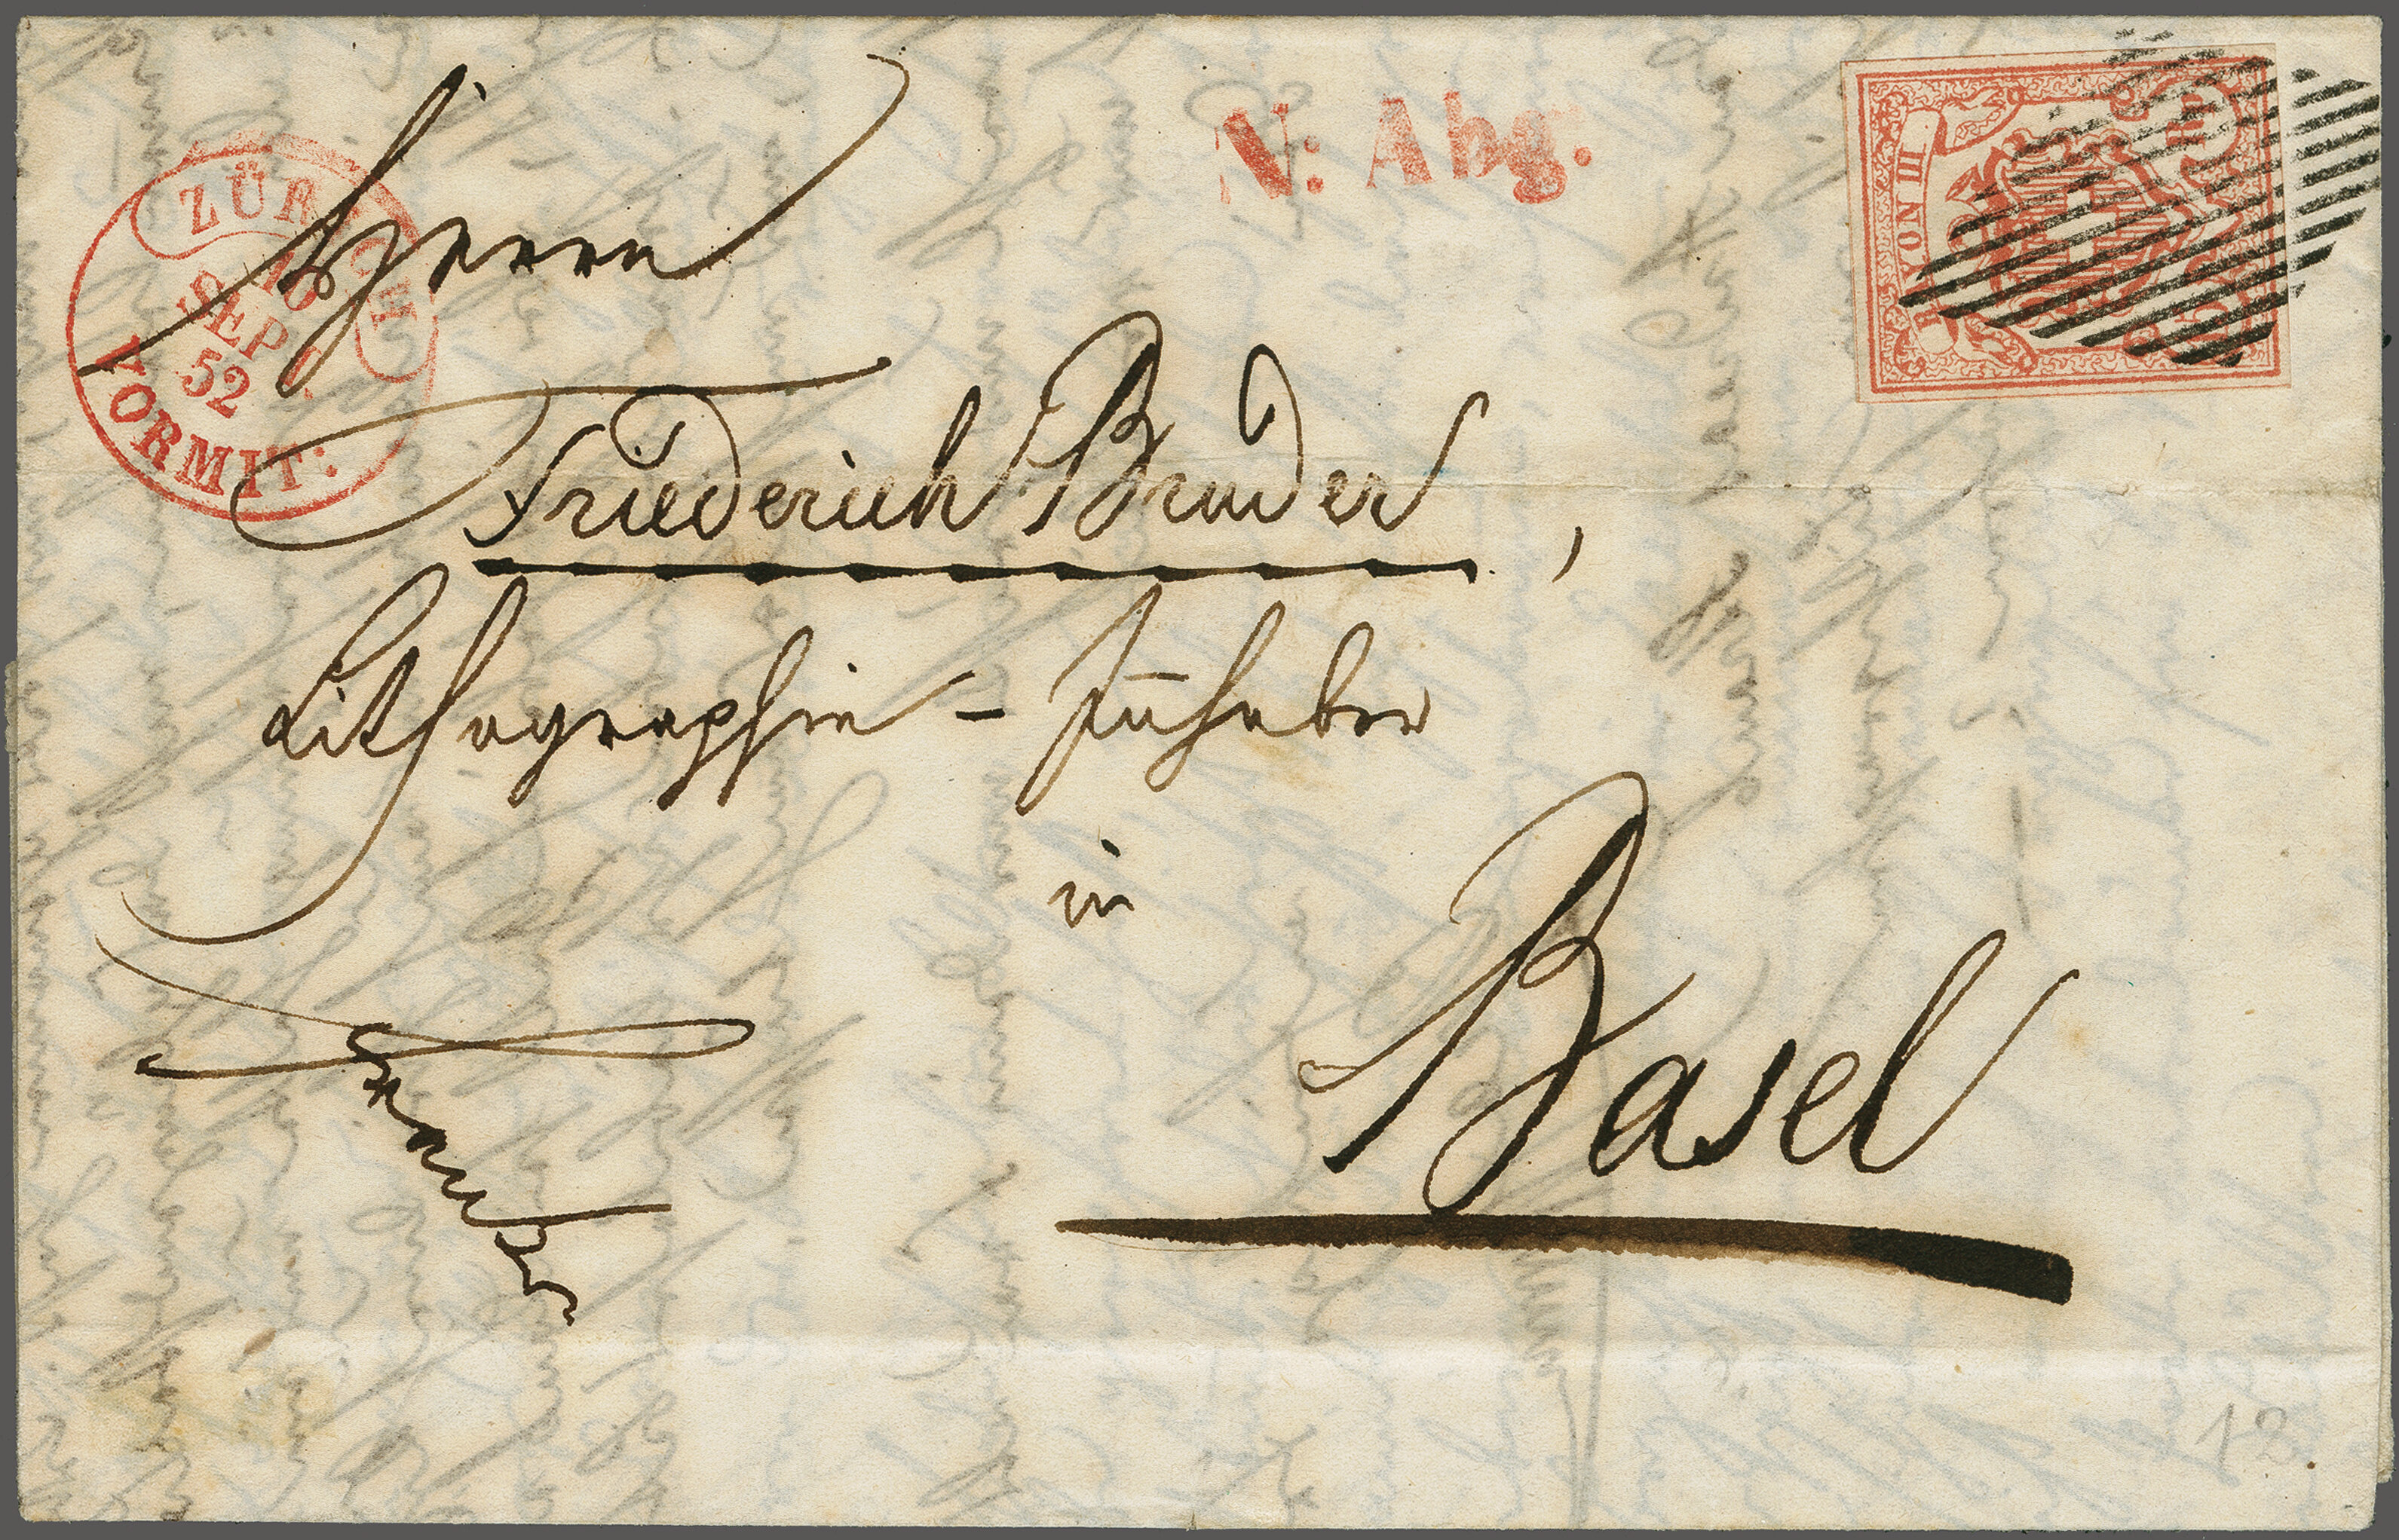 ZÜRICH
SEP
52
VORMIT:
N: Abg.
RAYON III
Herrn
Friederich Bruder,
Lithographie-Inhaber
in
Basel
franko
12